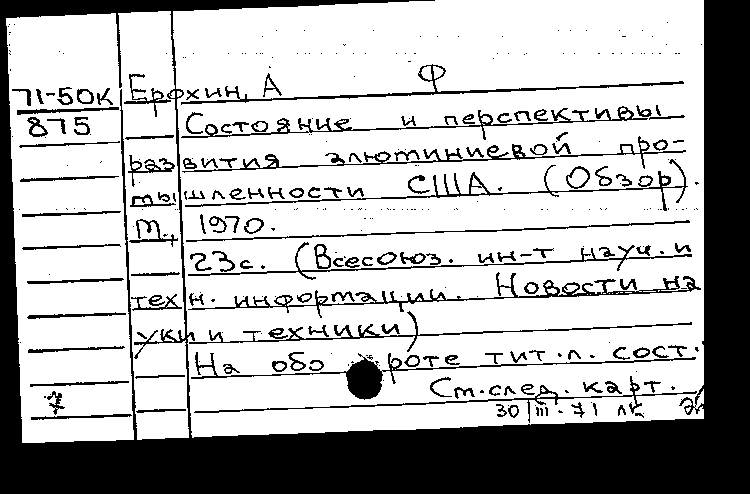 Ф
71-50К Ерохин, А
875 Состояние и перспективы
развития алюминиевой про-
мышленности США. (Обзор).
М., 1970.
23с. (Всесоюз. ин-т науч. и
техн. информации. Новости на
уки и техники)
На обо роте тит.л. сост.
См.след. карт.
7
30/III-71 лк